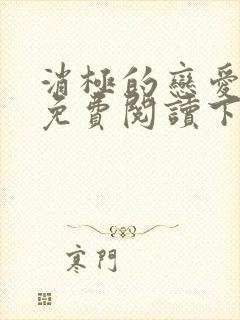 消極的戀愛
免費閱讀下
寒門